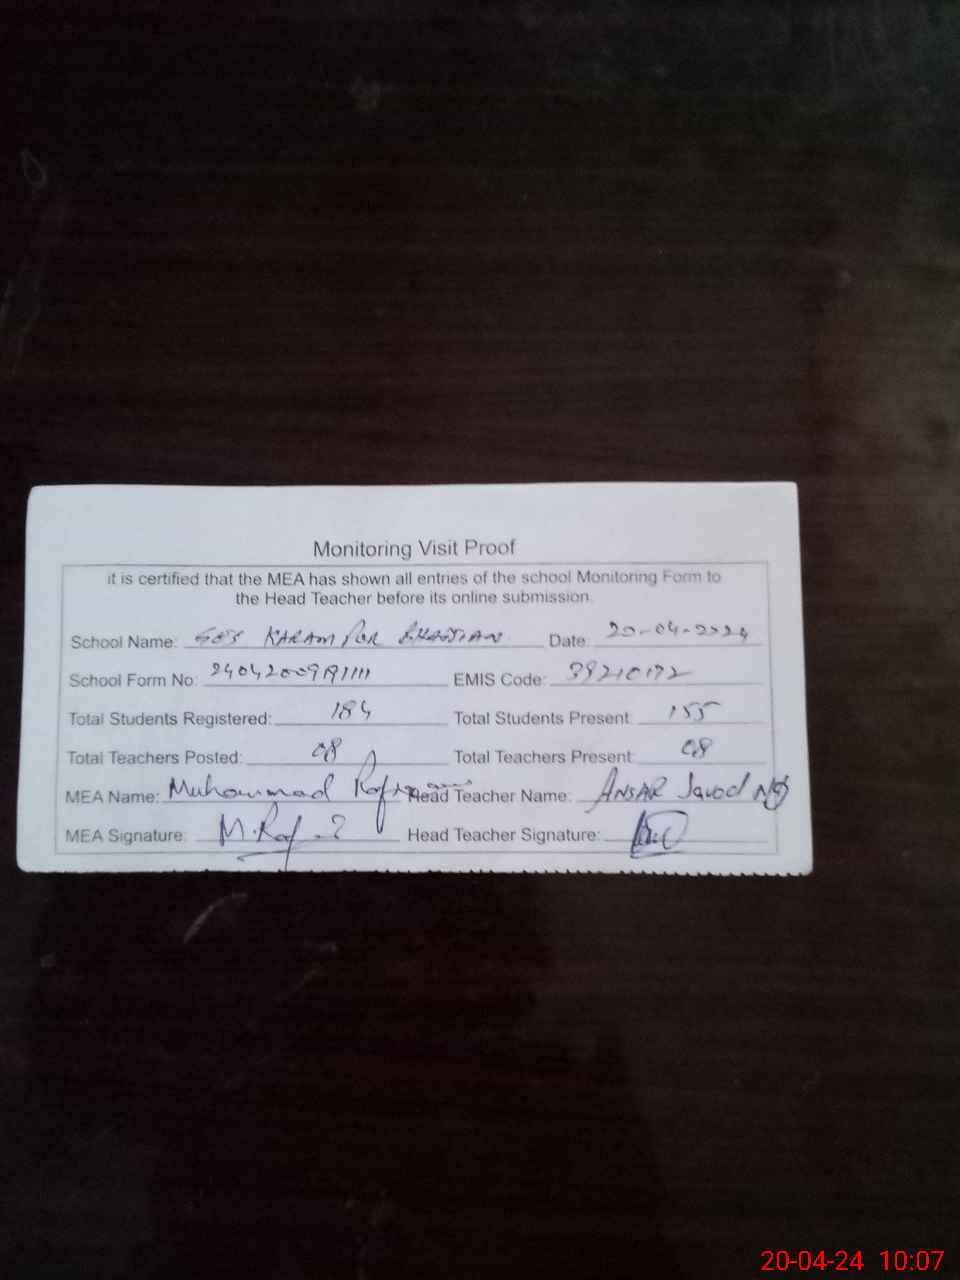 Monitoring Visit Proof
it is certified that the MEA has shown all entries of the school Monitoring Form to
the Head Teacher before its online submission.
School Name: KARAM PUR Date: 20-04-2024
School Form No: EMIS Code:
Total Students Registered: 184 Total Students Present: 155
Total Teachers Posted: 08 Total Teachers Present: 08
MEA Name: Muhammad Head Teacher Name: ANSAR Javed
MEA Signature: Head Teacher Signature:
20-04-24 10:07